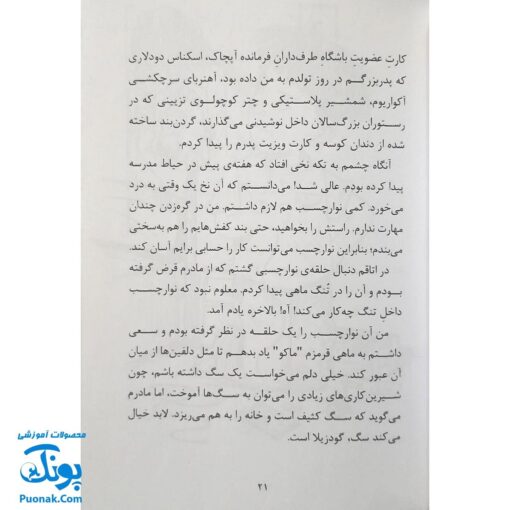 کارتِ عضویتِ باشگاهِ طرف‌دارانِ فرمانده آپچاک، اسکناس دودلاری
که پدربزرگم در روز تولدم به من داده بود، آهنربای سرچکشی
آکواریوم، شمشیر پلاستیکی و چتر کوچولوی تزیینی که در
رستوران بزرگ‌سالان داخل نوشیدنی می‌گذارند، گردن‌بند ساخته
شده از دندان کوسه و کارت ویزیت پدرم را پیدا کردم.
آنگاه چشمم به تکه نخی افتاد که هفته‌ی پیش در حیاط مدرسه
پیدا کرده بودم. عالی شد! می‌دانستم که آن نخ یک وقتی به درد
می‌خورد. کمی نوارچسب هم لازم داشتم. من در گره‌زدن چندان
مهارت ندارم. راستش را بخواهید، حتی بند کفش‌هایم را هم به‌سختی
می‌بندم؛ بنابراین نوارچسب می‌توانست کار را حسابی برایم آسان کند.
در اتاقم دنبال حلقه‌ی نوارچسبی گشتم که از مادرم قرض گرفته
بودم و آن را در تُنگ ماهی پیدا کردم. معلوم نبود که نوارچسب
داخلِ تنگ چه‌کار می‌کند! آه! بالاخره یادم آمد.
من آن نوارچسب را یک حلقه در نظر گرفته بودم و سعی
داشتم به ماهی قرمزم "ماکو" یاد بدهم تا مثل دلفین‌ها از میان
آن عبور کند. خیلی دلم می‌خواست یک سگ داشته باشم، چون
شیرین‌کاری‌های زیادی را می‌توان به سگ‌ها آموخت، اما مادرم
می‌گوید که سگ کثیف است و خانه را به هم می‌ریزد. لابد خیال
می‌کند سگ، گودزیلا است.
۲۱
محصولات آموزشی
پونک
Puonak.Com